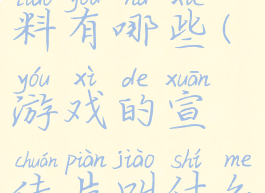 liào yǒu nǎ xiē
料有哪些(
yóu xì de xuān
游戏的宣
chuán piàn jiào shí me
传片叫什么